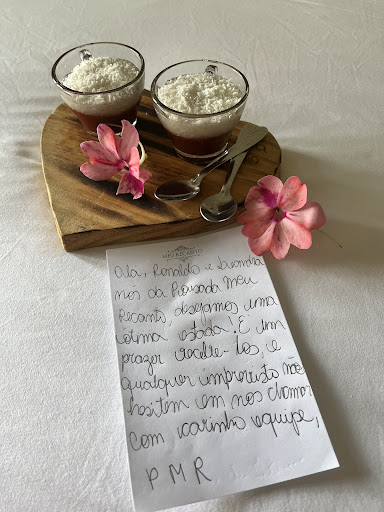 MEU RECANTO
Olá, Ronaldo e Leandra
nós da Pousada Meu
Recanto, desejamos uma
ótima estada! É um
prazer recebe-los, e
qualquer imprevisto não
hesitem em nos chamar
com carinho equipe,
P M R